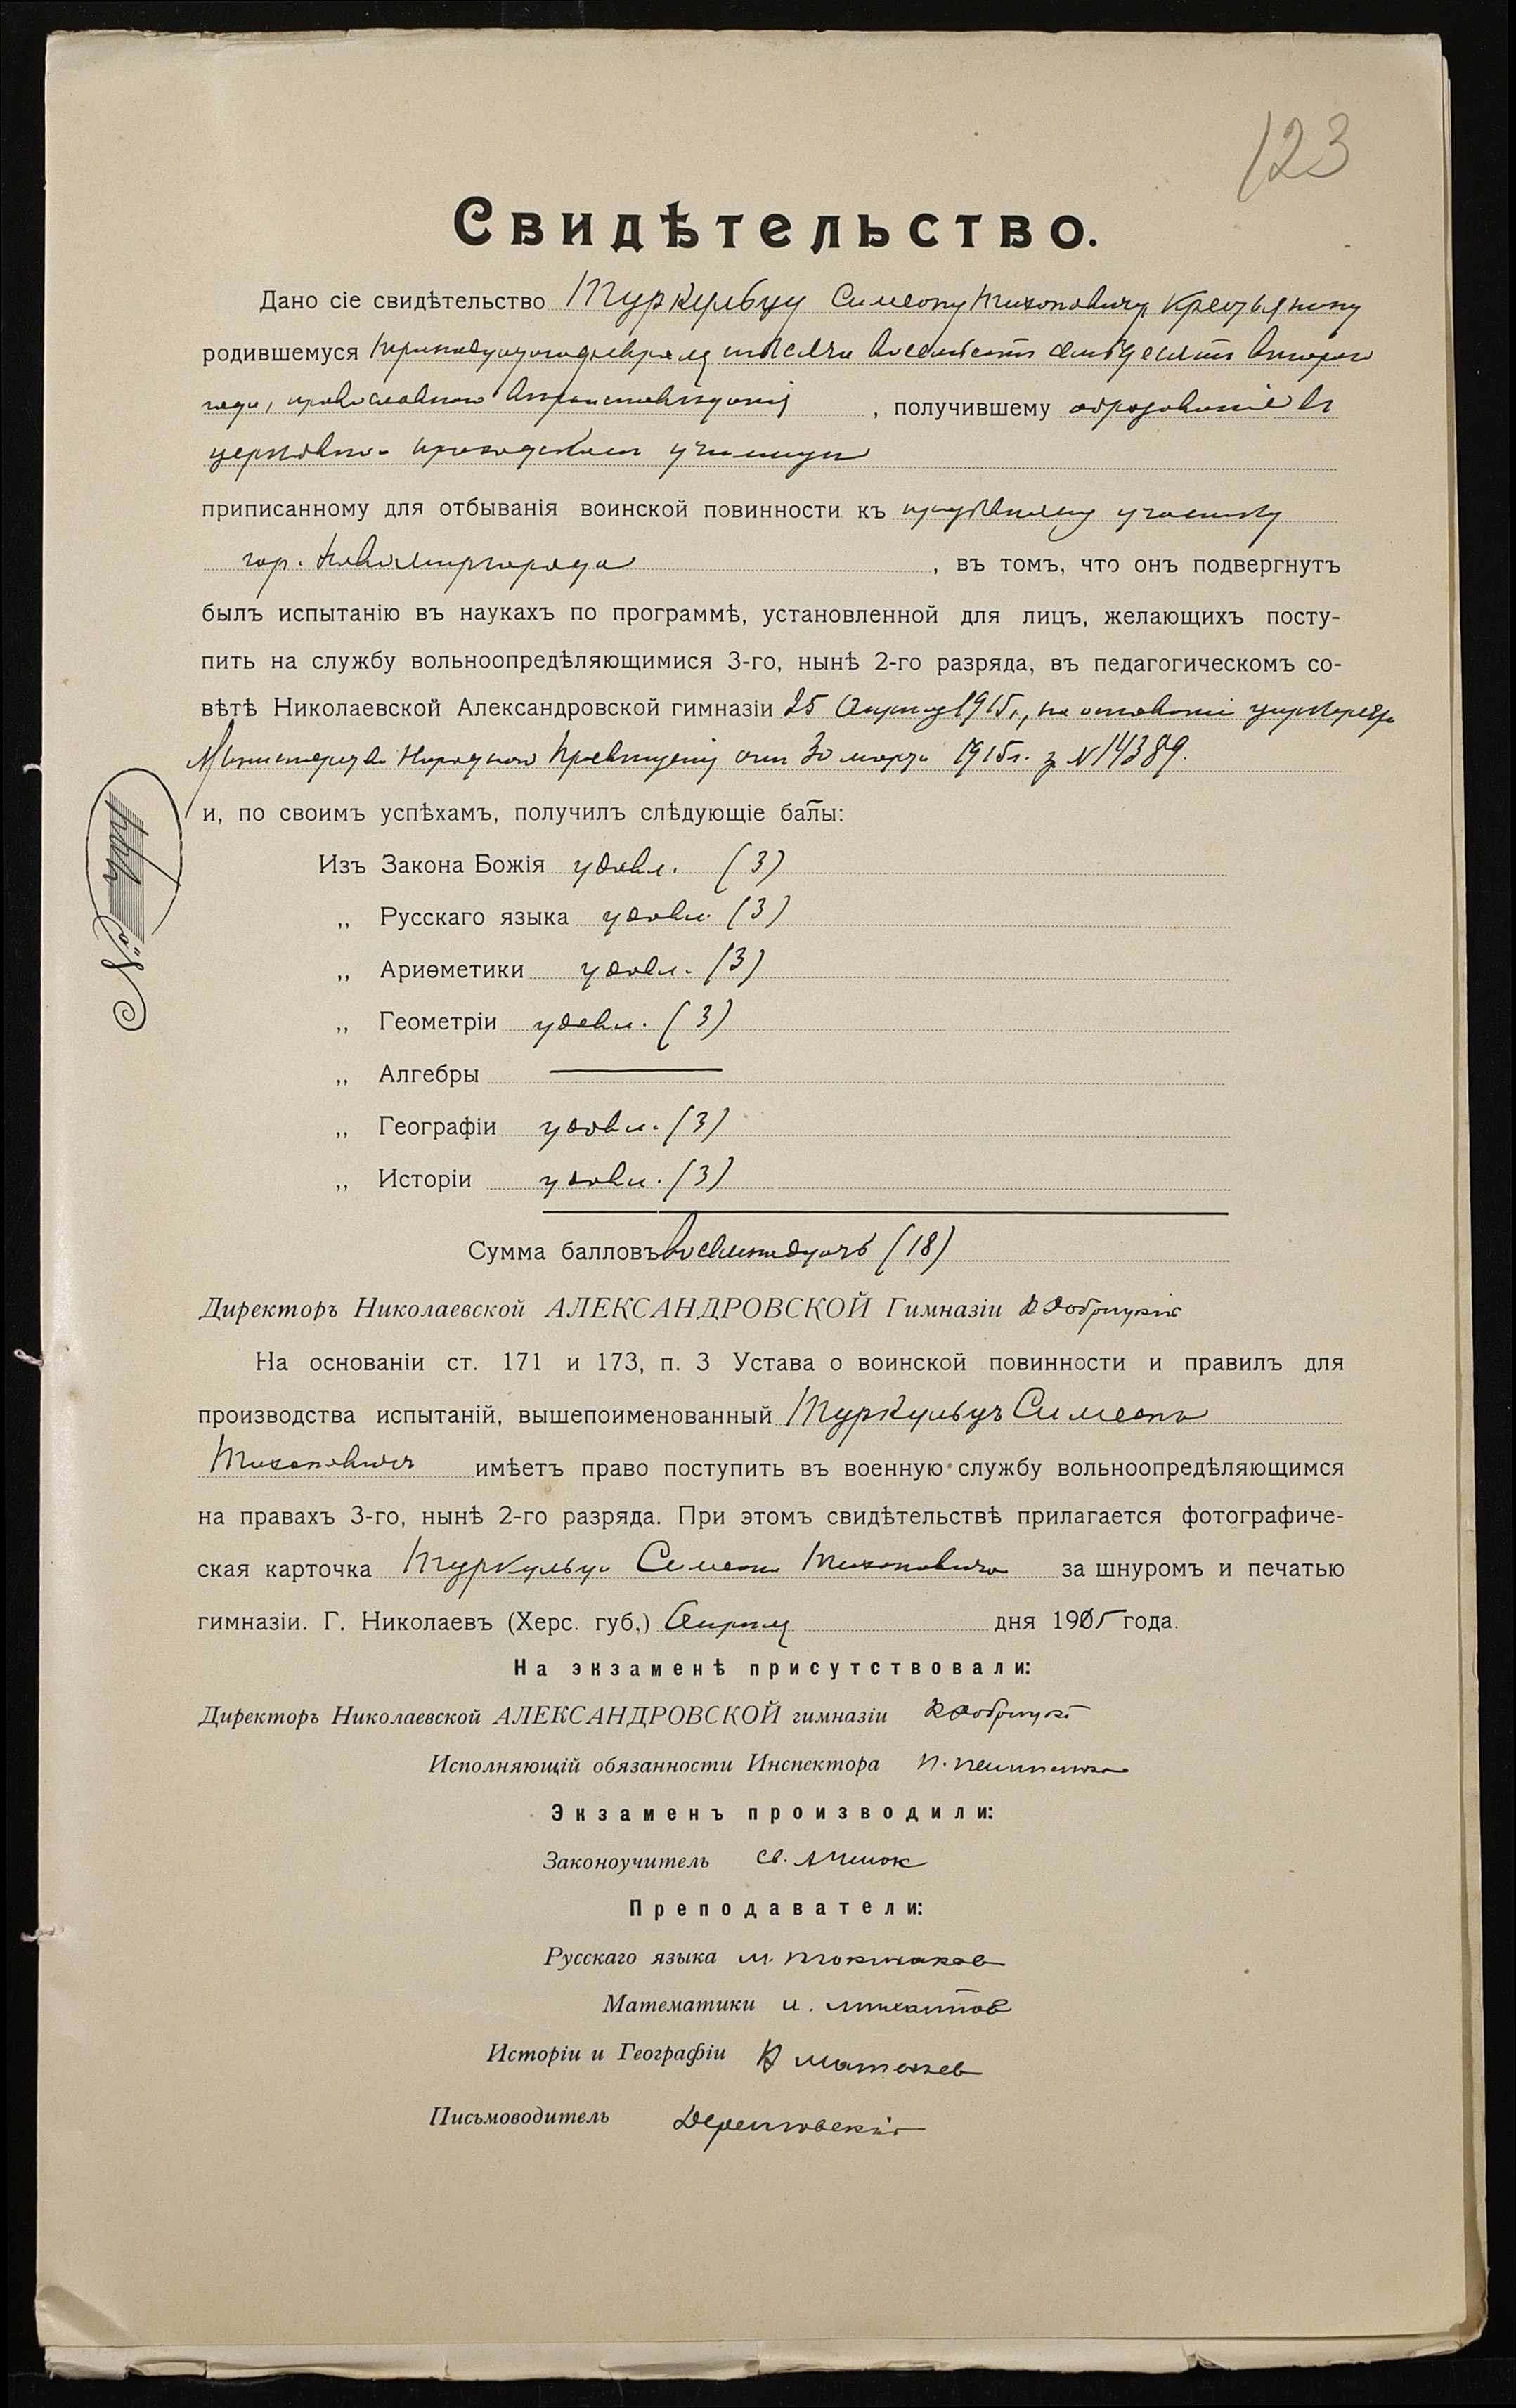 123
Свидѣтельство.
Дано сіе свидѣтельство Туркульцу Симеону Тихоновичу, крестьянину
родившемуся тысяча восемьсотъ семьдесятъ второго
года, православнаго вѣроисповѣданія, получившему образованіе въ
церковно-приходскомъ училищѣ
приписанному для отбыванія воинской повинности къ призывному участку
гор. Новомиргорода, въ томъ, что онъ подвергнутъ
былъ испытанію въ наукахъ по программѣ, установленной для лицъ, желающихъ посту-
пить на службу вольноопредѣляющимися 3-го, нынѣ 2-го разряда, въ педагогическомъ со-
вѣтѣ Николаевской Александровской гимназіи 25 Апрѣля 1915г., на основаніи циркуляра
Министерства Народнаго Просвѣщенія отъ 30 марта 1915г. за № 14389.
и, по своимъ успѣхамъ, получилъ слѣдующіе балы:
Изъ Закона Божія удовл. (3)
„ Русскаго языка удовл. (3)
„ Ариѳметики удовл. (3)
„ Геометріи удовл. (3)
„ Алгебры ——
„ Географіи удовл. (3)
„ Исторіи удовл. (3)
Сумма балловъ восемнадцать (18)
Директоръ Николаевской АЛЕКСАНДРОВСКОЙ Гимназіи
На основаніи ст. 171 и 173, п. 3 Устава о воинской повинности и правилъ для
производства испытаній, вышепоименованный Туркульцъ Симеонъ
Тихоновичъ имѣетъ право поступить въ военную службу вольноопредѣляющимся
на правахъ 3-го, нынѣ 2-го разряда. При этомъ свидѣтельствѣ прилагается фотографиче-
ская карточка Туркульца Симеона Тихоновича за шнуромъ и печатью
гимназіи. Г. Николаевъ (Херс. губ.) Апрѣля дня 1915 года.
На экзаменѣ присутствовали:
Директоръ Николаевской АЛЕКСАНДРОВСКОЙ гимназіи
Исполняющій обязанности Инспектора
Экзаменъ производили:
Законоучитель Св.
Преподаватели:
Русскаго языка М.
Математики И. Михайлов
Исторіи и Географіи
Письмоводитель